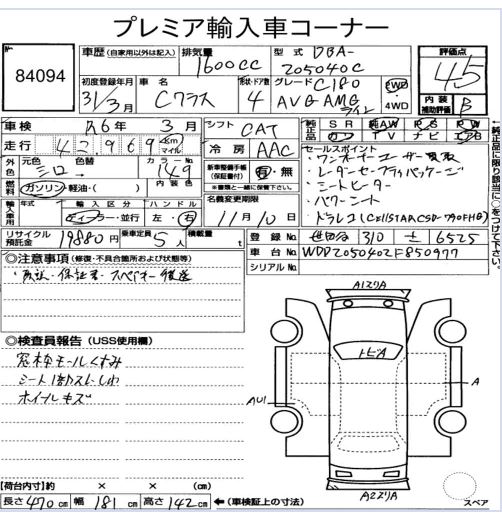 プレミア輸入車コーナー
84094
車歴 (自家用以外は記入)
排気量
1600cc
型式
DBA-
205040C
評価点
4.5
初度登録年月
31/3月
車名
Cクラス
形状・ドア数
4
グレード C180
AVG AMG
ライン
2WD
4WD
内装
補助評価
B
車検 R6年 3月
シフト CAT
純正品
SR 純AW PS PW
カワ TV ナビ エアB
走行 42,969 Km
マイル
冷房 AAC
セールスポイント
・ワンオーナーユーザー買取
・レーダーセーフティパッケージ
・シートヒーター
・パワーシート
・ドラレコ
外色
元色 シロ
色替
カラーNo 149
燃料
ガソリン・軽油・( )
内装色
新車整備手帳
(保証書付)
有・無
※書類と一緒に保管下さい。
輸入車用
年式
輸入区分
ディーラー・並行
ハンドル
左・右
名義変更期限
11月10日
リサイクル
預託金
19880円
乗車定員
5人
積載量
t
登録No. 世田谷 310 6525
車台No. WDD2050402F850977
シリアルNo.
←純正品に限り該当に○をつけて下さい。
◎注意事項 (修復・不具合箇所および状態等)
・取説・保証書・スペアキー後送
◎検査員報告 (USS使用欄)
窓枠モールくすみ
シート1部スレ・しわ
ホイールキズ
A1スリA
トビA
AU1
A
A2スリA
スペア
【荷台内寸】約 × × (cm)
長さ 470cm 幅 181cm 高さ 142cm ←(車検証上の寸法)